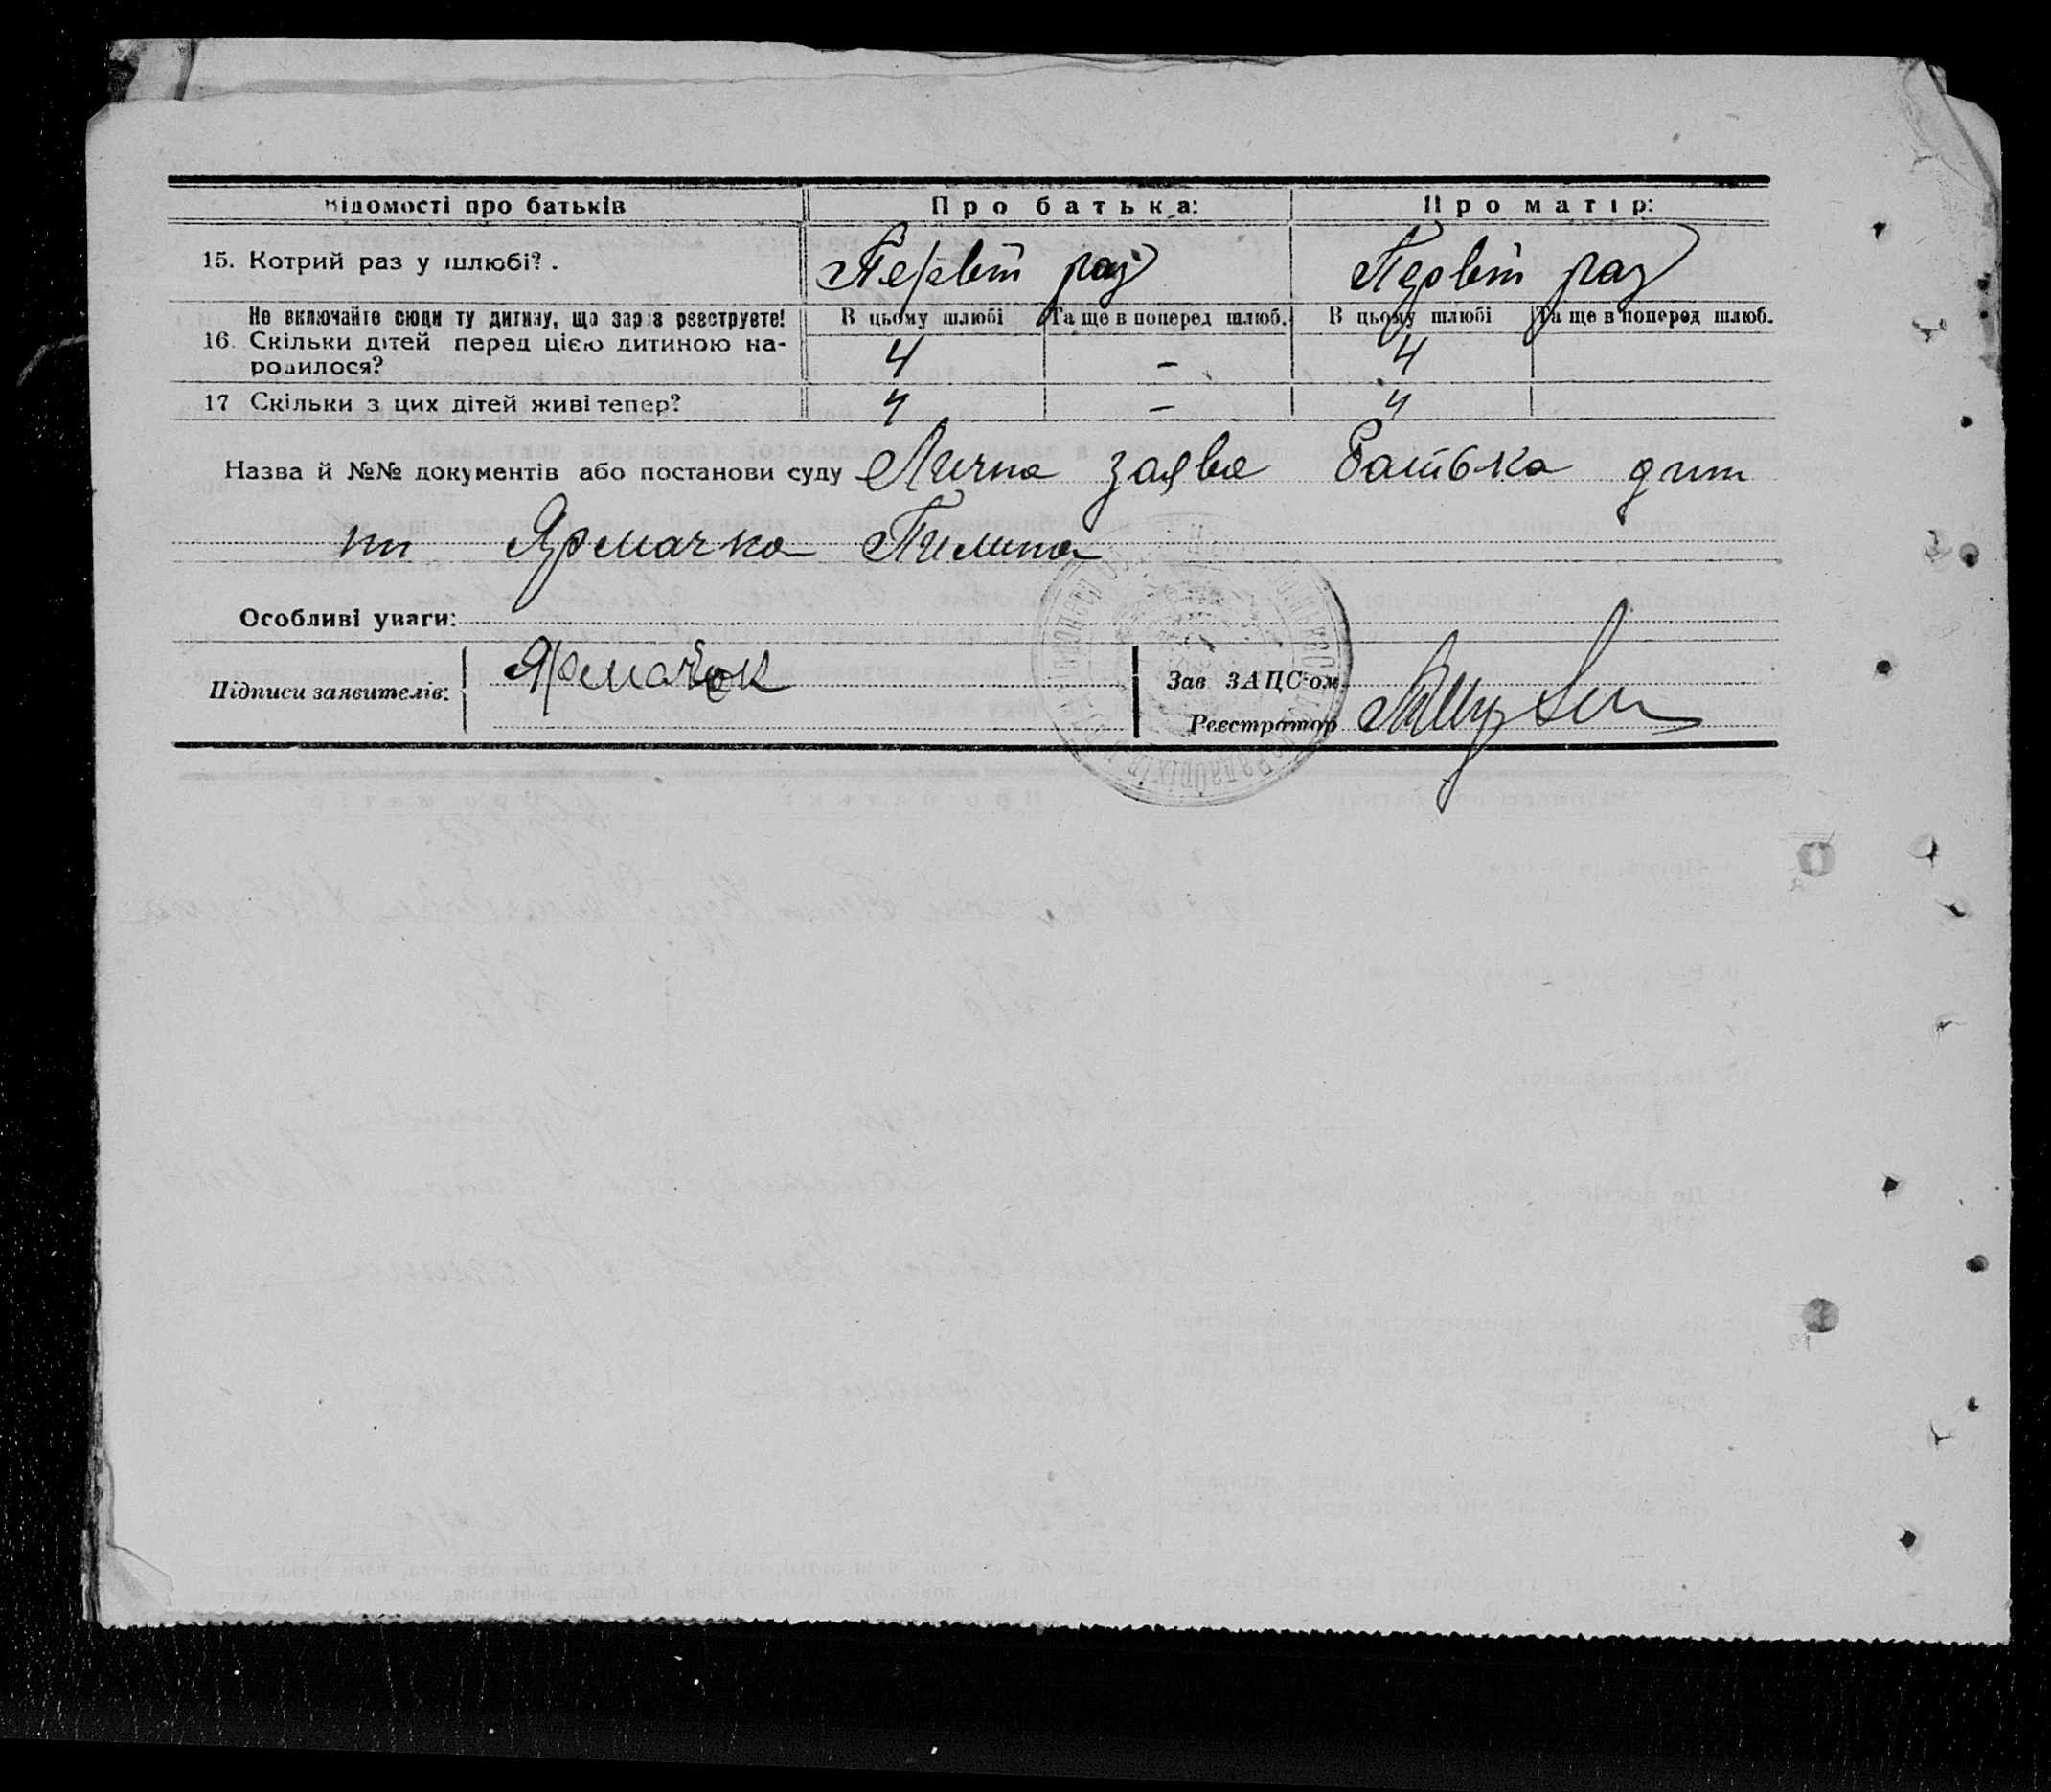 Відомості про батьків Про батька: Про матір:
15. Котрий раз у шлюбі? . Первий раз Первий раз
Не включайте сюди ту дитину, що зараз реєструєте! В цьому шлюбі Та ще в поперед шлюб. В цьому шлюбі Та ще в поперед шлюб.
16. Скільки дітей перед цією дитиною на-
родилося? 4 – 4
17 Скільки з цих дітей живі тепер? 4 – 4
Назва й №№ документів або постанови суду Лична заява батька дити
ни Ярмачка Пилипа
Особливі уваги:
Підписи заявителів: Ярмачок
Зав ЗАЦС'ом
Реєстратор